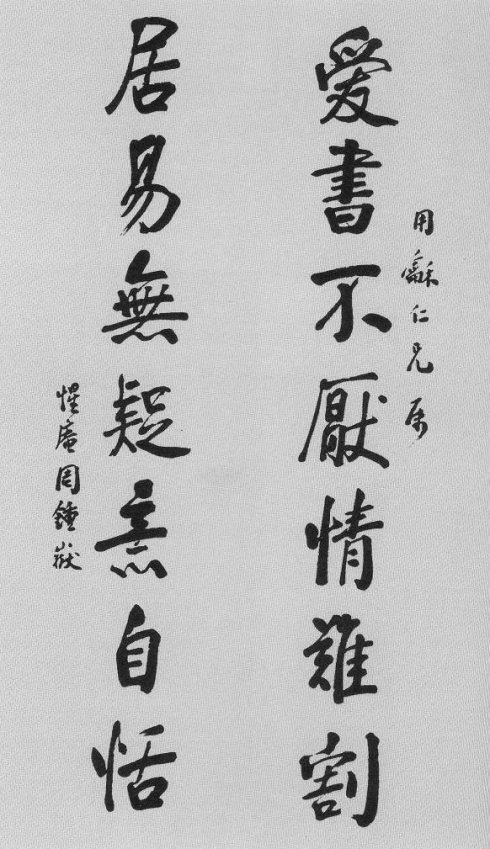 用龢仁兄属
愛書不厭情難割
居易無疑意自恬
惺庵周鍾嶽